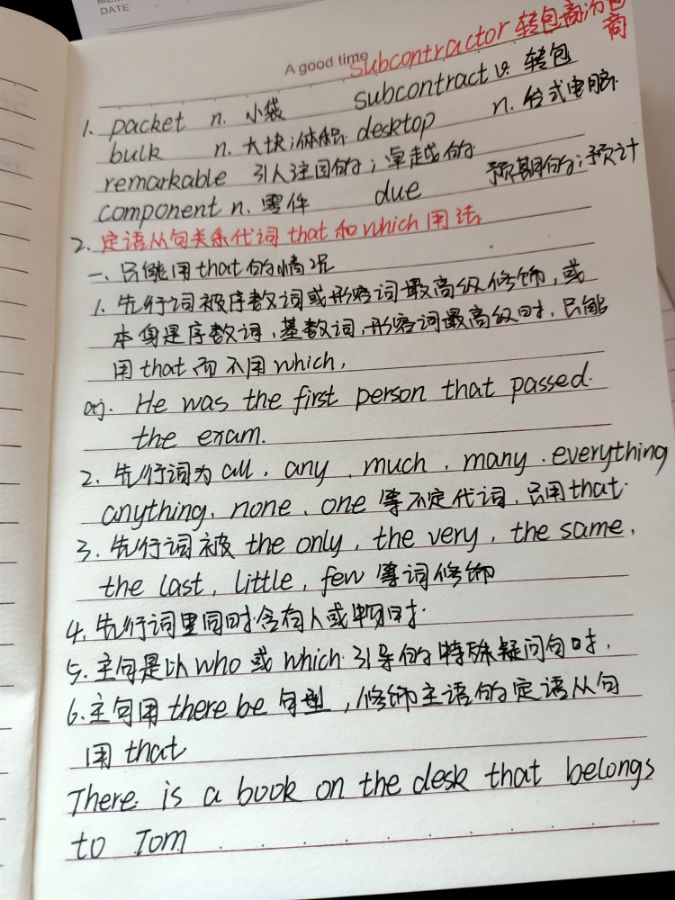 DATE
A good time
subcontractor 转包商
商
subcontract v. 转包
1. packet n. 小袋
bulk n. 大块;体积 desktop n. 台式电脑
remarkable 引人注目的;卓越的
component n. 零件 due 预期的;预计
2. 定语从句关系代词 that 和 which 用法
一、只能用 that 的情况
1. 先行词被序数词或形容词最高级修饰,或
本身是序数词、基数词、形容词最高级时,只能
用 that 而不用 which,
例. He was the first person that passed.
the exam.
2. 先行词为 all, any, much, many, everything
anything, none, one 等不定代词,只用 that.
3. 先行词被 the only, the very, the same,
the last, little, few 等词修饰
4. 先行词里同时含有人或物时.
5. 主句是以 who 或 which 引导的特殊疑问句时,
6. 主句用 there be 句型,修饰主语的定语从句
用 that
There is a book on the desk that belongs
to Tom